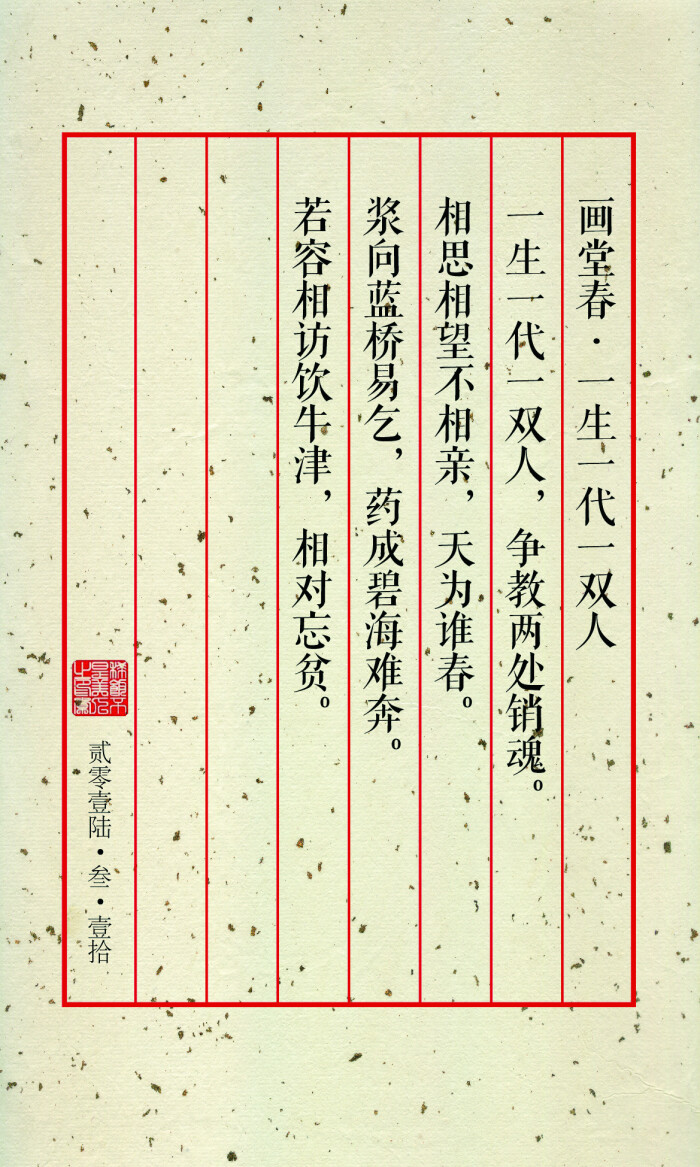 画堂春·一生一代一双人
一生一代一双人，争教两处销魂。
相思相望不相亲，天为谁春。
浆向蓝桥易乞，药成碧海难奔。
若容相访饮牛津，相对忘贫。
贰零壹陆·叁·壹拾